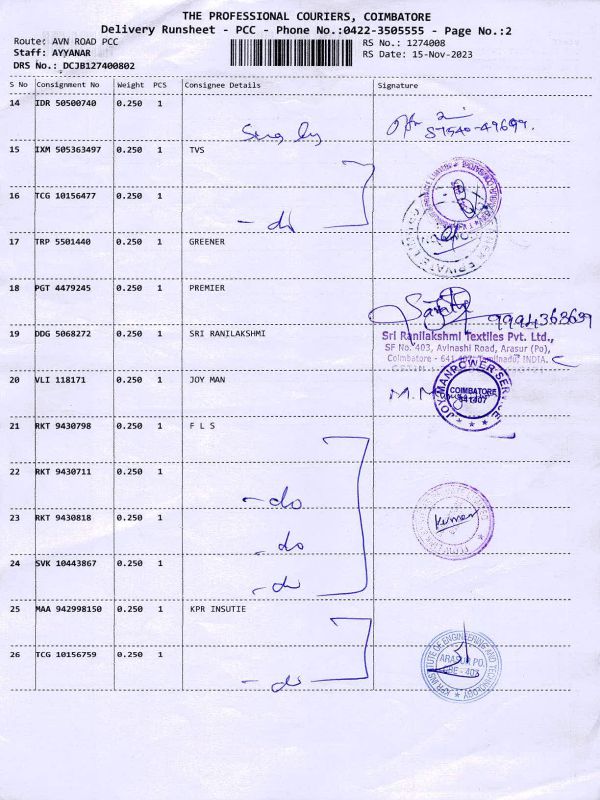 THE PROFESSIONAL COURIERS, COIMBATORE
Delivery Runsheet - PCC - Phone No.:0422-3505555 - Page No.:2
Route: AVN ROAD PCC
RS No.: 1274008
Staff: AYYANAR
RS Date: 15-Nov-2023
DRS No.: DCJB127400802
S No Consignment No Weight PCS Consignee Details Signature
14 IDR 50500740 0.250 1
15 IXM 505363497 0.250 1 TVS
16 TCG 10156477 0.250 1
- do
17 TRP 5501440 0.250 1 GREENER
18 PGT 4479245 0.250 1 PREMIER
9994363699
19 DDG 5068272 0.250 1 SRI RANILAKSHMI
Sri Ranilakshmi Textiles Pvt. Ltd.,
SF No. 403, Avinashi Road, Arasur (Po),
Coimbatore - 641 407, Tamilnadu, INDIA.
20 VLI 118171 0.250 1 JOY MAN
JOY MANPOWER SERVICE
COIMBATORE
641407
21 RKT 9430798 0.250 1 F L S
22 RKT 9430711 0.250 1
- do
23 RKT 9430818 0.250 1
- do
Kumar
24 SVK 10443867 0.250 1
- do
25 MAA 942998150 0.250 1 KPR INSUTIE
26 TCG 10156759 0.250 1
- do
KPR INSTITUTE OF ENGINEERING AND TECHNOLOGY
ARASUR PO.
CBE - 403